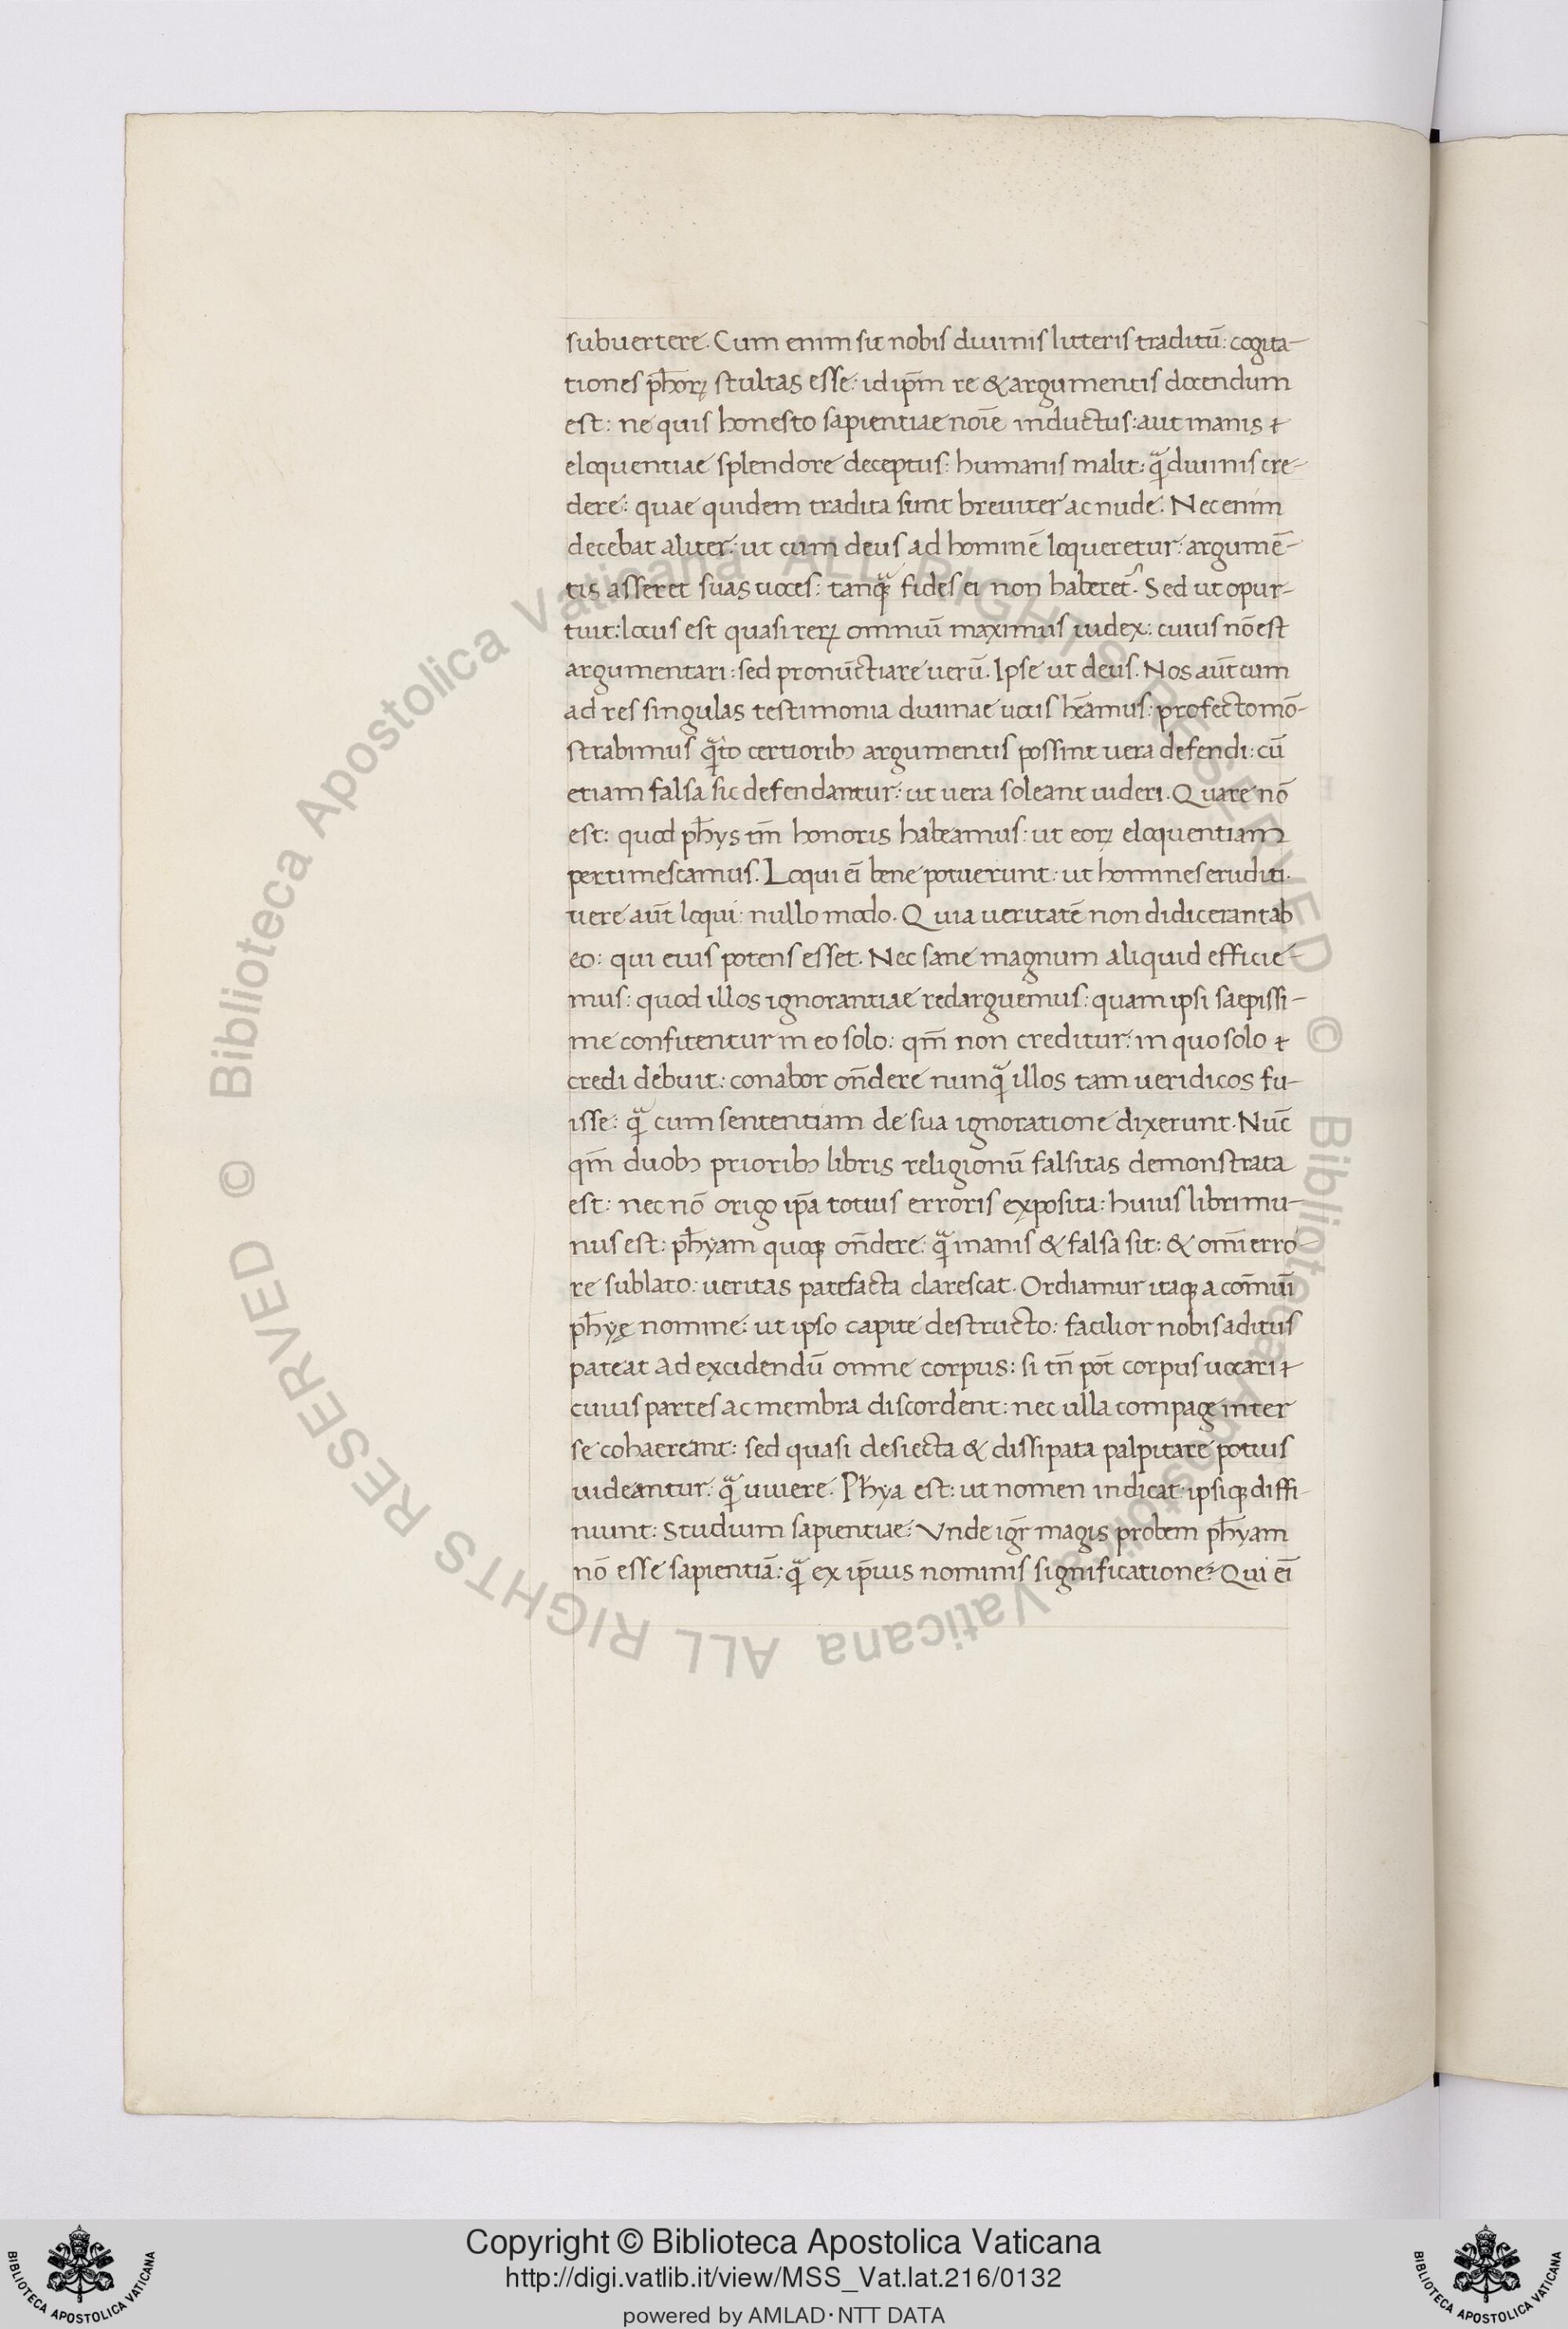 subuertere. Cum enim sit nobis diuinis litteris traditū: cogita-
tiones ph̄orꝝ stultas esse: id ip̄m re & argumentis docendum
est: ne quis honesto sapientiae noīe inductus: aut inanis
eloquentiae splendore deceptus: humanis malit: qᷓ diuinis cre-
dere: quae quidem tradita sunt breuiter ac nude. Nec enim
decebat aliter: ut cum deus ad hominē loqueretur: argumē-
tis asseret suas uoces: tanqᷓ fides ei non haberet᷑. Sed ut opur-
tuit: locus est quasi rerꝝ omniū maximus iudex: cuius nō est
argumentari: sed pronūctiare uerū. Ipse ut deus. Nos aūt cum
ad res singulas testimonia diuinae uocis hēamus: profecto mō-
strabimus qᷓto certioribꝫ argumentis possint uera defendi: cū
etiam falsa sic defendantur: ut uera soleant uideri. Quare nō
est: quod ph̄ys tm̄ honoris habeamus: ut eorꝝ eloquentiam
pertimescamus. Loqui ei̅ bene potuerunt: ut homines eruditi.
uere aūt loqui: nullo modo. Quia ueritatē non didicerant ab
eo: qui eius potens esset. Nec sane magnum aliquid efficie-
mus: quod illos ignorantiae redarguemus: quam ipsi saepissi-
me confitentur in eo solo: qm̄ non creditur: in quo solo
credi debuit: conabor on̄dere nunqᷓ illos tam ueridicos fu-
isse: qᷓ cum sententiam de sua ignoratione dixerunt. Nūc
qm̄ duobꝫ prioribꝫ libris religionū falsitas demonstrata
est: nec nō origo ip̄a totius erroris exposita: huius libri mu-
nus est: ph̄yam quoqꝫ on̄dere: qᷓ inanis & falsa sit: & om̄i erro-
re sublato: ueritas patefacta clarescat. Ordiamur itaqꝫ a com̄uni
ph̄yę nomine: ut ipso capite destructo: facilior nobis aditus
pateat ad excidendū omne corpus: si tn̄ pōt corpus uocari
cuius partes ac membra discordent: nec ulla compage inter
se cohaereant: sed quasi desiecta & dissipata palpitare potius
uideantur: qᷓ uiuere. Ph̄ya est: ut nomen indicat: ipsiqꝫ diffi-
niunt: Studium sapientiae: Vnde igr̄ magis probem ph̄yam
nō esse sapientiā: qᷓ ex ip̄ius nominis significatione? Qui ei̅
© Biblioteca Apostolica Vaticana ALL RIGHTS RESERVED © Biblioteca Apostolica Vaticana ALL RIGHTS RESERVED
Copyright © Biblioteca Apostolica Vaticana
http://digi.vatlib.it/view/MSS_Vat.lat.216/0132
powered by AMLAD·NTT DATA
BIBLIOTECA APOSTOLICA VATICANA
BIBLIOTECA APOSTOLICA VATICANA